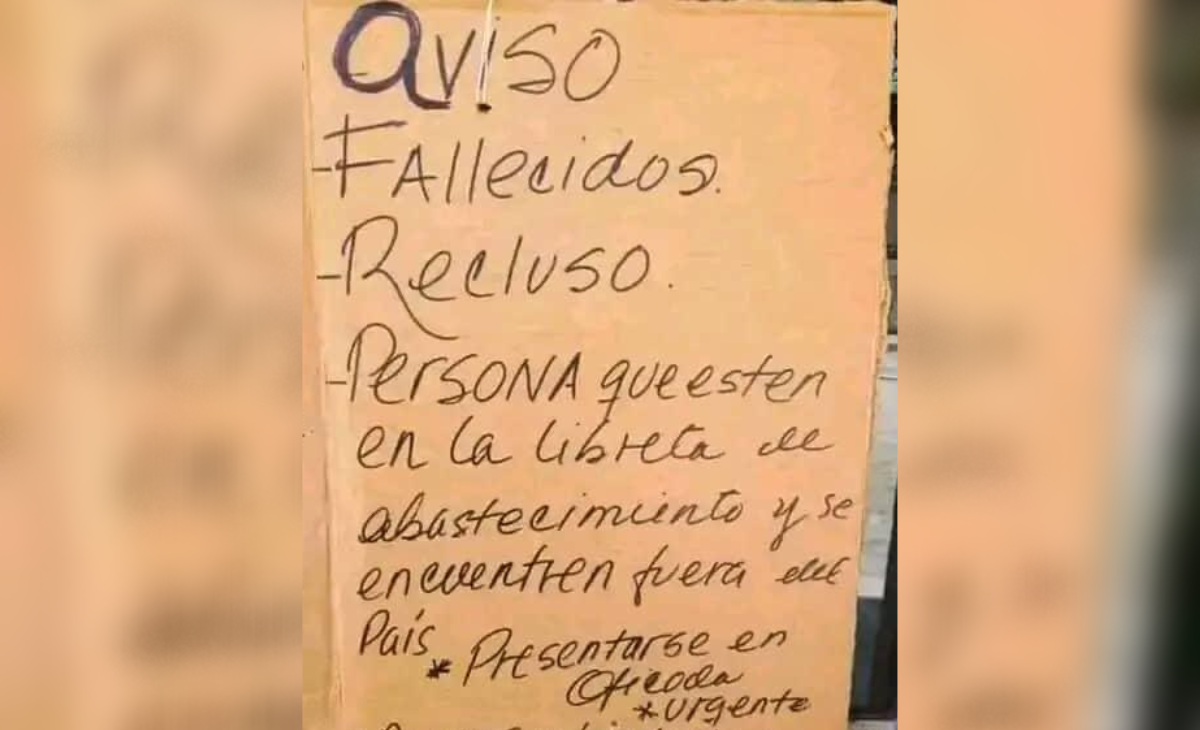 aviso
-FAllecidos.
-Recluso.
-PersoNA que esten
en la libreta de
abastecimiento y se
encuentren fuera del
País
* Presentarse en
Oficoda
*urgente